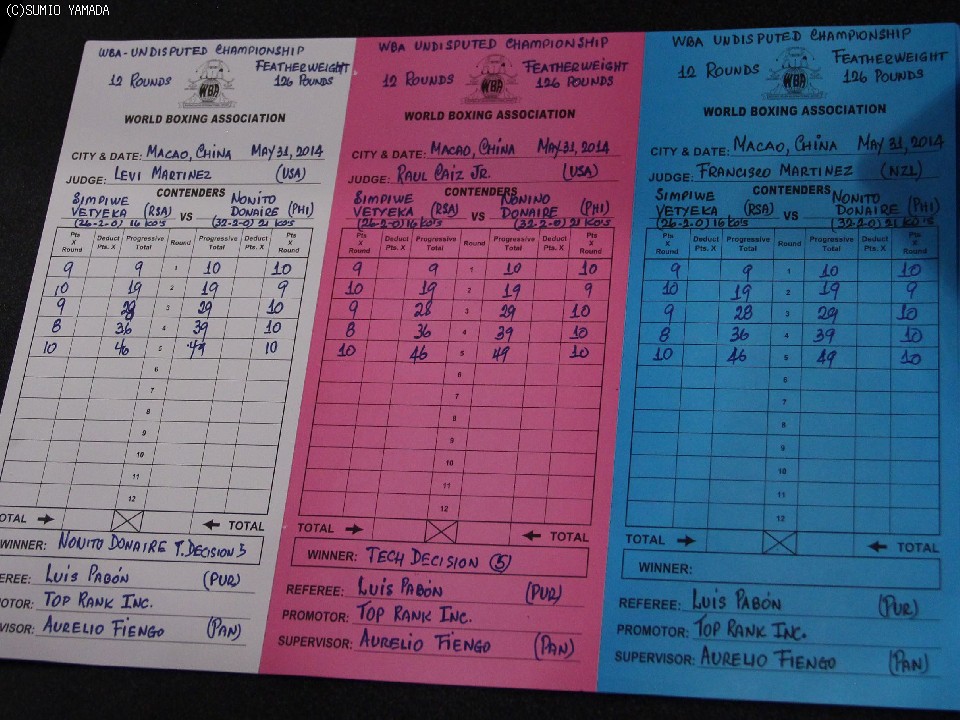 (C)SUMIO YAMADA
WBA - UNDISPUTED CHAMPIONSHIP
12 ROUNDS
FEATHERWEIGHT
126 POUNDS
WBA
WORLD BOXING ASSOCIATION
CITY & DATE: MACAO, CHINA MAY 31, 2014
JUDGE: LEVI MARTINEZ (USA)
CONTENDERS
SIMPIWE VETYEKA (RSA) VS NONITO DONAIRE (PHI)
(26-2-0) 16 KO'S (32-2-0) 21 KO'S
Pts X Round Deduct Pts. X Progressive Total Round Progressive Total Deduct Pts. X Pts X Round
9 9 1 10 10
10 19 2 19 9
9 28 3 29 10
8 36 4 39 10
10 46 5 49 10
6
7
8
9
10
11
12
OTAL TOTAL
WINNER: NONITO DONAIRE T. DECISION 5
EREE: LUIS PABÓN (PUR)
OTOR: TOP RANK INC.
VISOR: AURELIO FIENGO (PAN)
WBA UNDISPUTED CHAMPIONSHIP
12 ROUNDS
FEATHERWEIGHT
126 POUNDS
WBA
WORLD BOXING ASSOCIATION
CITY & DATE: MACAO, CHINA MAY 31, 2014
JUDGE: RAUL CAIZ JR. (USA)
CONTENDERS
SIMPIWE VETYEKA (RSA) VS NONINO DONAIRE (PHI)
(26-2-0) 16 KO'S (32-2-0) 21 KO'S
Pts X Round Deduct Pts. X Progressive Total Round Progressive Total Deduct Pts. X Pts X Round
9 9 1 10 10
10 19 2 19 9
9 28 3 29 10
8 36 4 39 10
10 46 5 49 10
6
7
8
9
10
11
12
TOTAL TOTAL
WINNER: TECH DECISION 5
REFEREE: LUIS PABÓN (PUR)
PROMOTOR: TOP RANK INC.
SUPERVISOR: AURELIO FIENGO (PAN)
WBA UNDISPUTED CHAMPIONSHIP
12 ROUNDS
FEATHERWEIGHT
126 POUNDS
WBA
WORLD BOXING ASSOCIATION
CITY & DATE: MACAO, CHINA MAY 31, 2014
JUDGE: FRANCISCO MARTINEZ (NZL)
CONTENDERS
SIMPIWE VETYEKA (RSA) VS NONITO DONAIRE (PHI)
(26-2-0) 16 KO'S (32-2-0) 21 KO'S
Pts X Round Deduct Pts. X Progressive Total Round Progressive Total Deduct Pts. X Pts X Round
9 9 1 10 10
10 19 2 19 9
9 28 3 29 10
8 36 4 39 10
10 46 5 49 10
6
7
8
9
10
11
12
TOTAL TOTAL
WINNER:
REFEREE: LUIS PABÓN (PUR)
PROMOTOR: TOP RANK INC.
SUPERVISOR: AURELIO FIENGO (PAN)